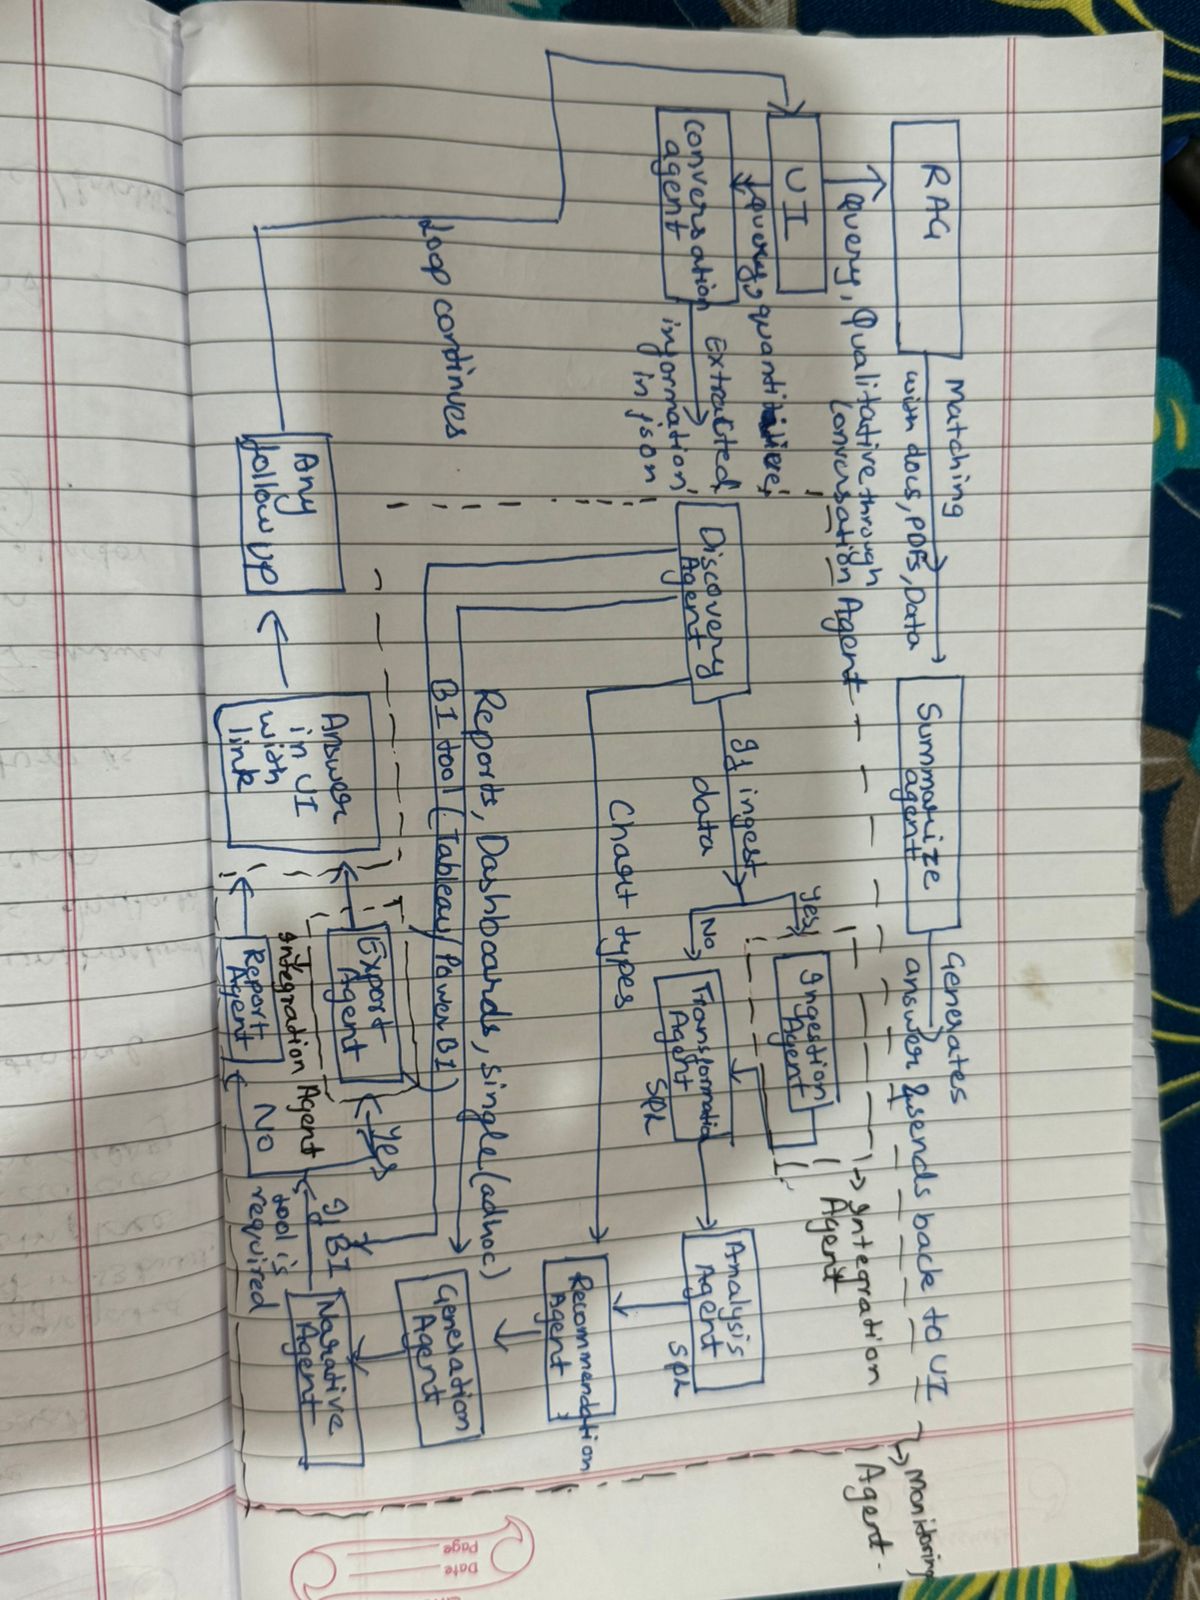 RAG
Matching
with docs, PDFs, Data
Summarize
agent
Generates
answer & sends back to UI
Monitoring
Agent.
Query, Qualitative through
Conversation Agent
UI
Query, quantitative
Conversation
agent
Extracted
information
in json
Discovery
Agent
If ingest
data
Yes
No
Ingestion
Agent
Integration
Agent
Transformation
Agent
SQL
Analysis
Agent
SQL
Chart types
Recommendation
Agent
Reports, Dashboards, single (adhoc)
BI tool (Tableau/Power BI)
Generation
Agent
Loop continues
Narrative
Agent
If BI
tool is
required
Yes
No
Export
Agent
Integration Agent
Report
Agent
Answer
in UI
with
link
Any
follow up
Page
Date